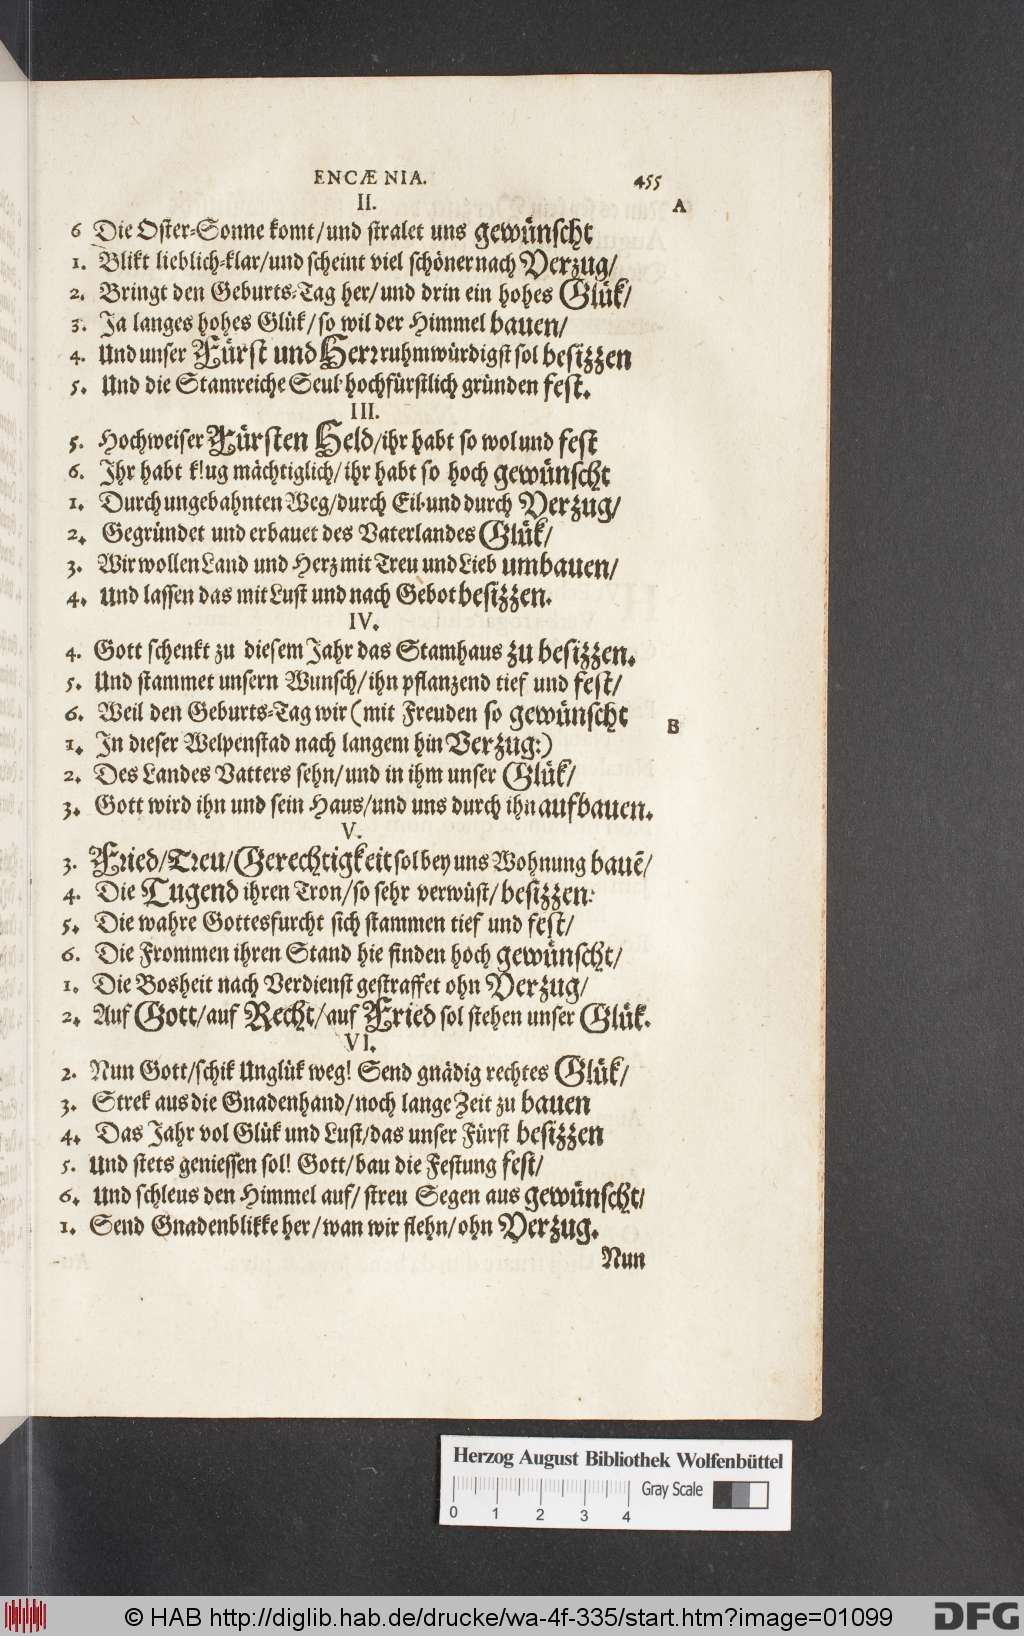 ENCÆNIA. 455
II.
A
6 Die Oster-Sonne komt/und stralet uns gewünscht
1. Blikt lieblich-klar/und scheint viel schöner nach Verzug/
2. Bringt den Geburts-Tag her/und drin ein hohes Glük/
3. Ja langes hohes Glük/so wil der Himmel bauen/
4. Und unser Fürst und Herr ruhmwürdigst sol besizzen
5. Und die Stamreiche Seul hochfürstlich gründen fest.
III.
5. Hochweiser Fürsten Held/ihr habt so wol und fest
6. Ihr habt klug mächtiglich/ihr habt so hoch gewünscht
1. Durch ungebahnten Weg/durch Eil und durch Verzug/
2. Gegründet und erbauet des Vaterlandes Glük/
3. Wir wollen Land und Herz mit Treu und Lieb umbauen/
4. Und lassen das mit Lust und nach Gebot besizzen.
IV.
4. Gott schenkt zu diesem Jahr das Stamhaus zu besizzen.
5. Und stammet unsern Wunsch/ihn pflanzend tief und fest/
6. Weil den Geburts-Tag wir (mit Freuden so gewünscht
B
1. In dieser Welpenstad nach langem hin Verzug:)
2. Des Landes Vatters sehn/und in ihm unser Glük/
3. Gott wird ihn und sein Haus/und uns durch ihn aufbauen.
V.
3. Fried/Treu/Gerechtigkeit sol bey uns Wohnung bauē/
4. Die Tugend ihren Tron/so sehr verwüst/besizzen:
5. Die wahre Gottesfurcht sich stammen tief und fest/
6. Die Frommen ihren Stand hie finden hoch gewünscht/
1. Die Bosheit nach Verdienst gestraffet ohn Verzug/
2. Auf Gott/auf Recht/auf Fried sol stehen unser Glük.
VI.
2. Nun Gott/schik Unglük weg! Send gnädig rechtes Glük/
3. Strek aus die Gnadenhand/noch lange Zeit zu bauen
4. Das Jahr vol Glük und Lust/das unser Fürst besizzen
5. Und stets geniessen sol! Gott/bau die Festung fest/
6. Und schleus den Himmel auf/streu Segen aus gewünscht/
1. Send Gnadenblikke her/wan wir flehn/ohn Verzug.
Nun
Herzog August Bibliothek Wolfenbüttel
Gray Scale
0 1 2 3 4
© HAB http://diglib.hab.de/drucke/wa-4f-335/start.htm?image=01099
DFG